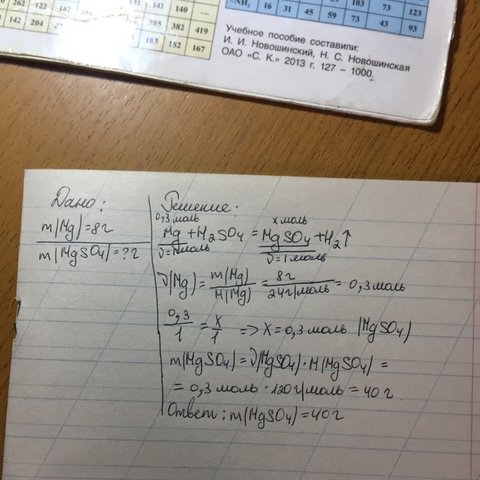 262 122 187 131 141 140 —
142 204 385 382 419
183 182 167
—NH₂ 16 31 45 59 103 73 123
73 43 93
Учебное пособие составили:
И. И. Новошинский, Н. С. Новошинская
ОАО «С. К.» 2013 г. 127 – 1000.
Дано:
m(Mg)=8г
m(MgSO₄)=?г
Решение:
0,3моль x моль
Mg+H₂SO₄=MgSO₄+H₂↑
ν=1моль ν=1моль
ν(Mg)=m(Mg)/M(Mg)=8г/24г/моль=0,3моль
0,3/1=x/1 => x=0,3моль (MgSO₄)
m(MgSO₄)=ν(MgSO₄)·M(MgSO₄)=
=0,3моль·120г/моль=40г
Ответ: m(MgSO₄)=40г